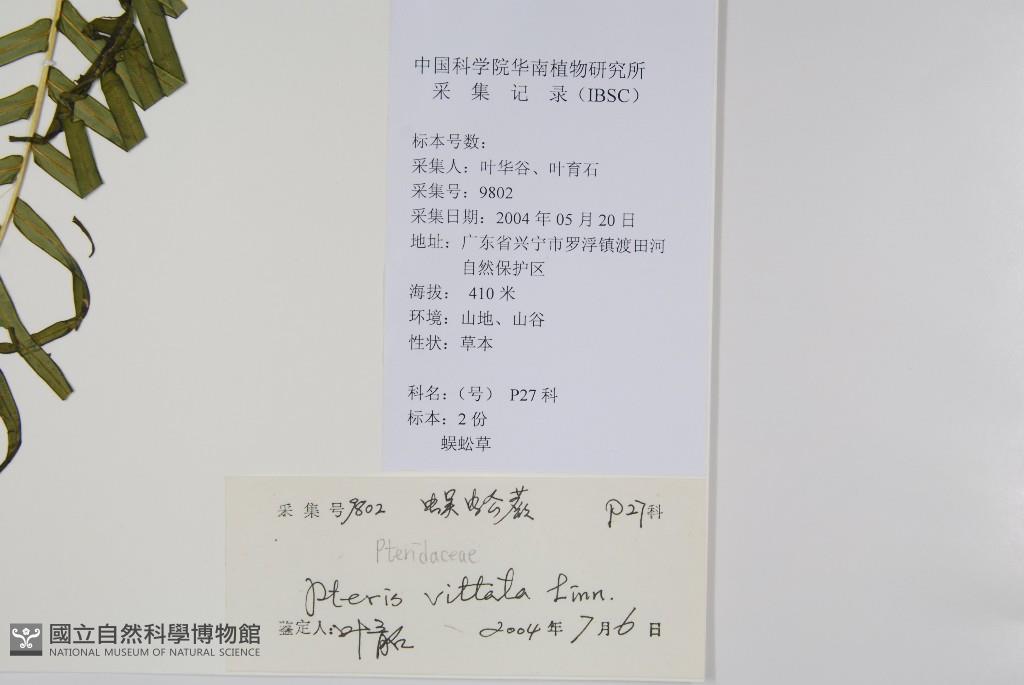 中国科学院华南植物研究所
采 集 记 录（IBSC）
标本号数：
采集人：叶华谷、叶育石
采集号：9802
采集日期：2004 年 05 月 20 日
地址：广东省兴宁市罗浮镇渡田河
自然保护区
海拔： 410 米
环境：山地、山谷
性状：草本
科名：（号） P27 科
标本：2 份
蜈蚣草
采 集 号 9802 蜈蚣蕨 P27科
Pteridaceae
Pteris vittata Linn.
鉴定人：叶育石 2004 年 7 月 6 日
國立自然科學博物館
NATIONAL MUSEUM OF NATURAL SCIENCE